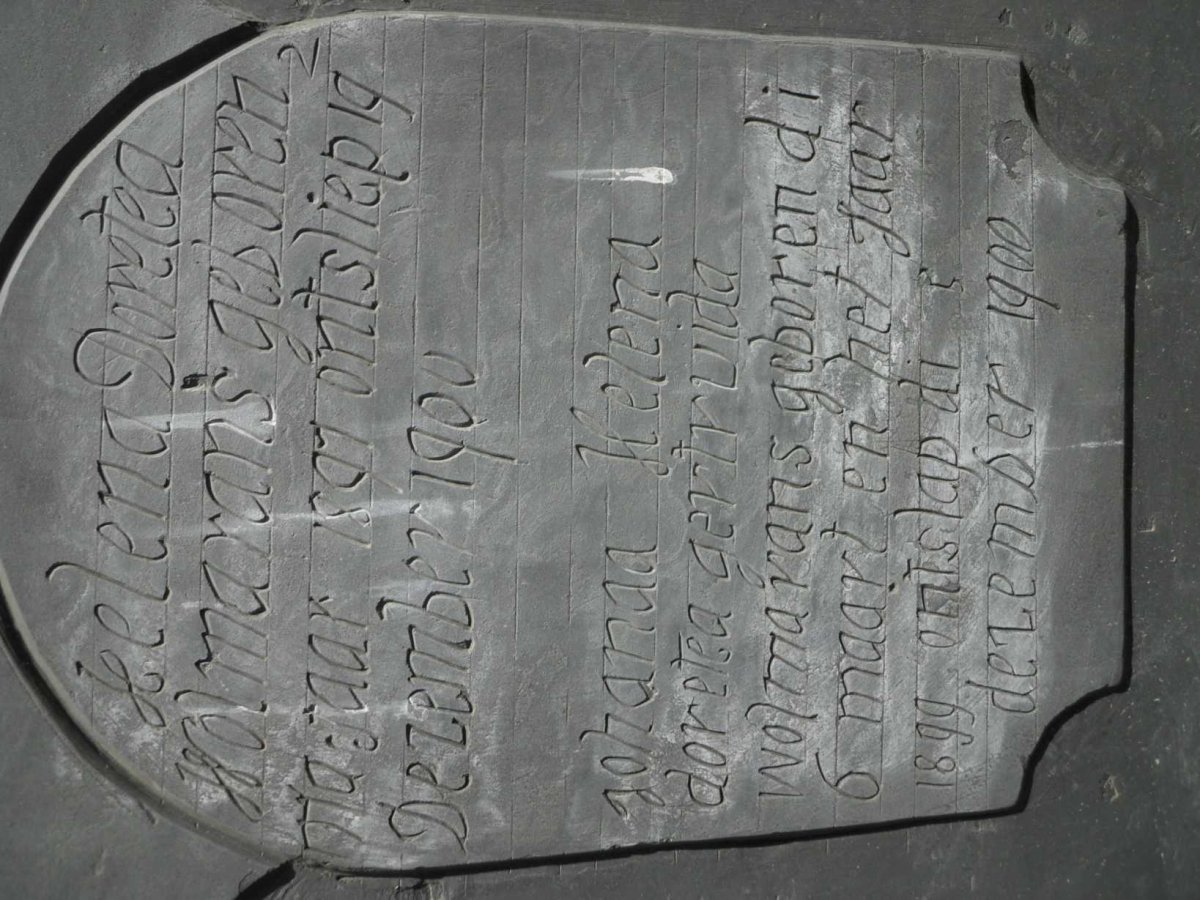 Helena Doretea
Wolmarans geboren 2
Ma jaar 1897 ontsliep 19
Dezember 1900
Johanaa Helena
doretea gertruida
wolmarans geboren di
6 maart en het Jaar
1899 ontslap di 5
dezember 1900